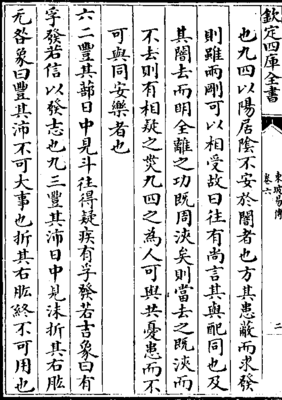 欽定四庫全書
東坡易傳
卷六
二
也九四以陽居陰不安於闇者也方其患蔽而求發
則雖兩剛可以相受故曰往有尚言其與配同也及
其闇去而明全離之功既周浹矣則當去之既浹而
不去則有相疑之災九四之為人可與共憂患而不
可與同安樂者也
六二豐其蔀日中見斗往得疑疾有孚發若吉象曰有
孚發若信以發志也九三豐其沛日中見沫折其右肱
无咎象曰豐其沛不可大事也折其右肱終不可用也